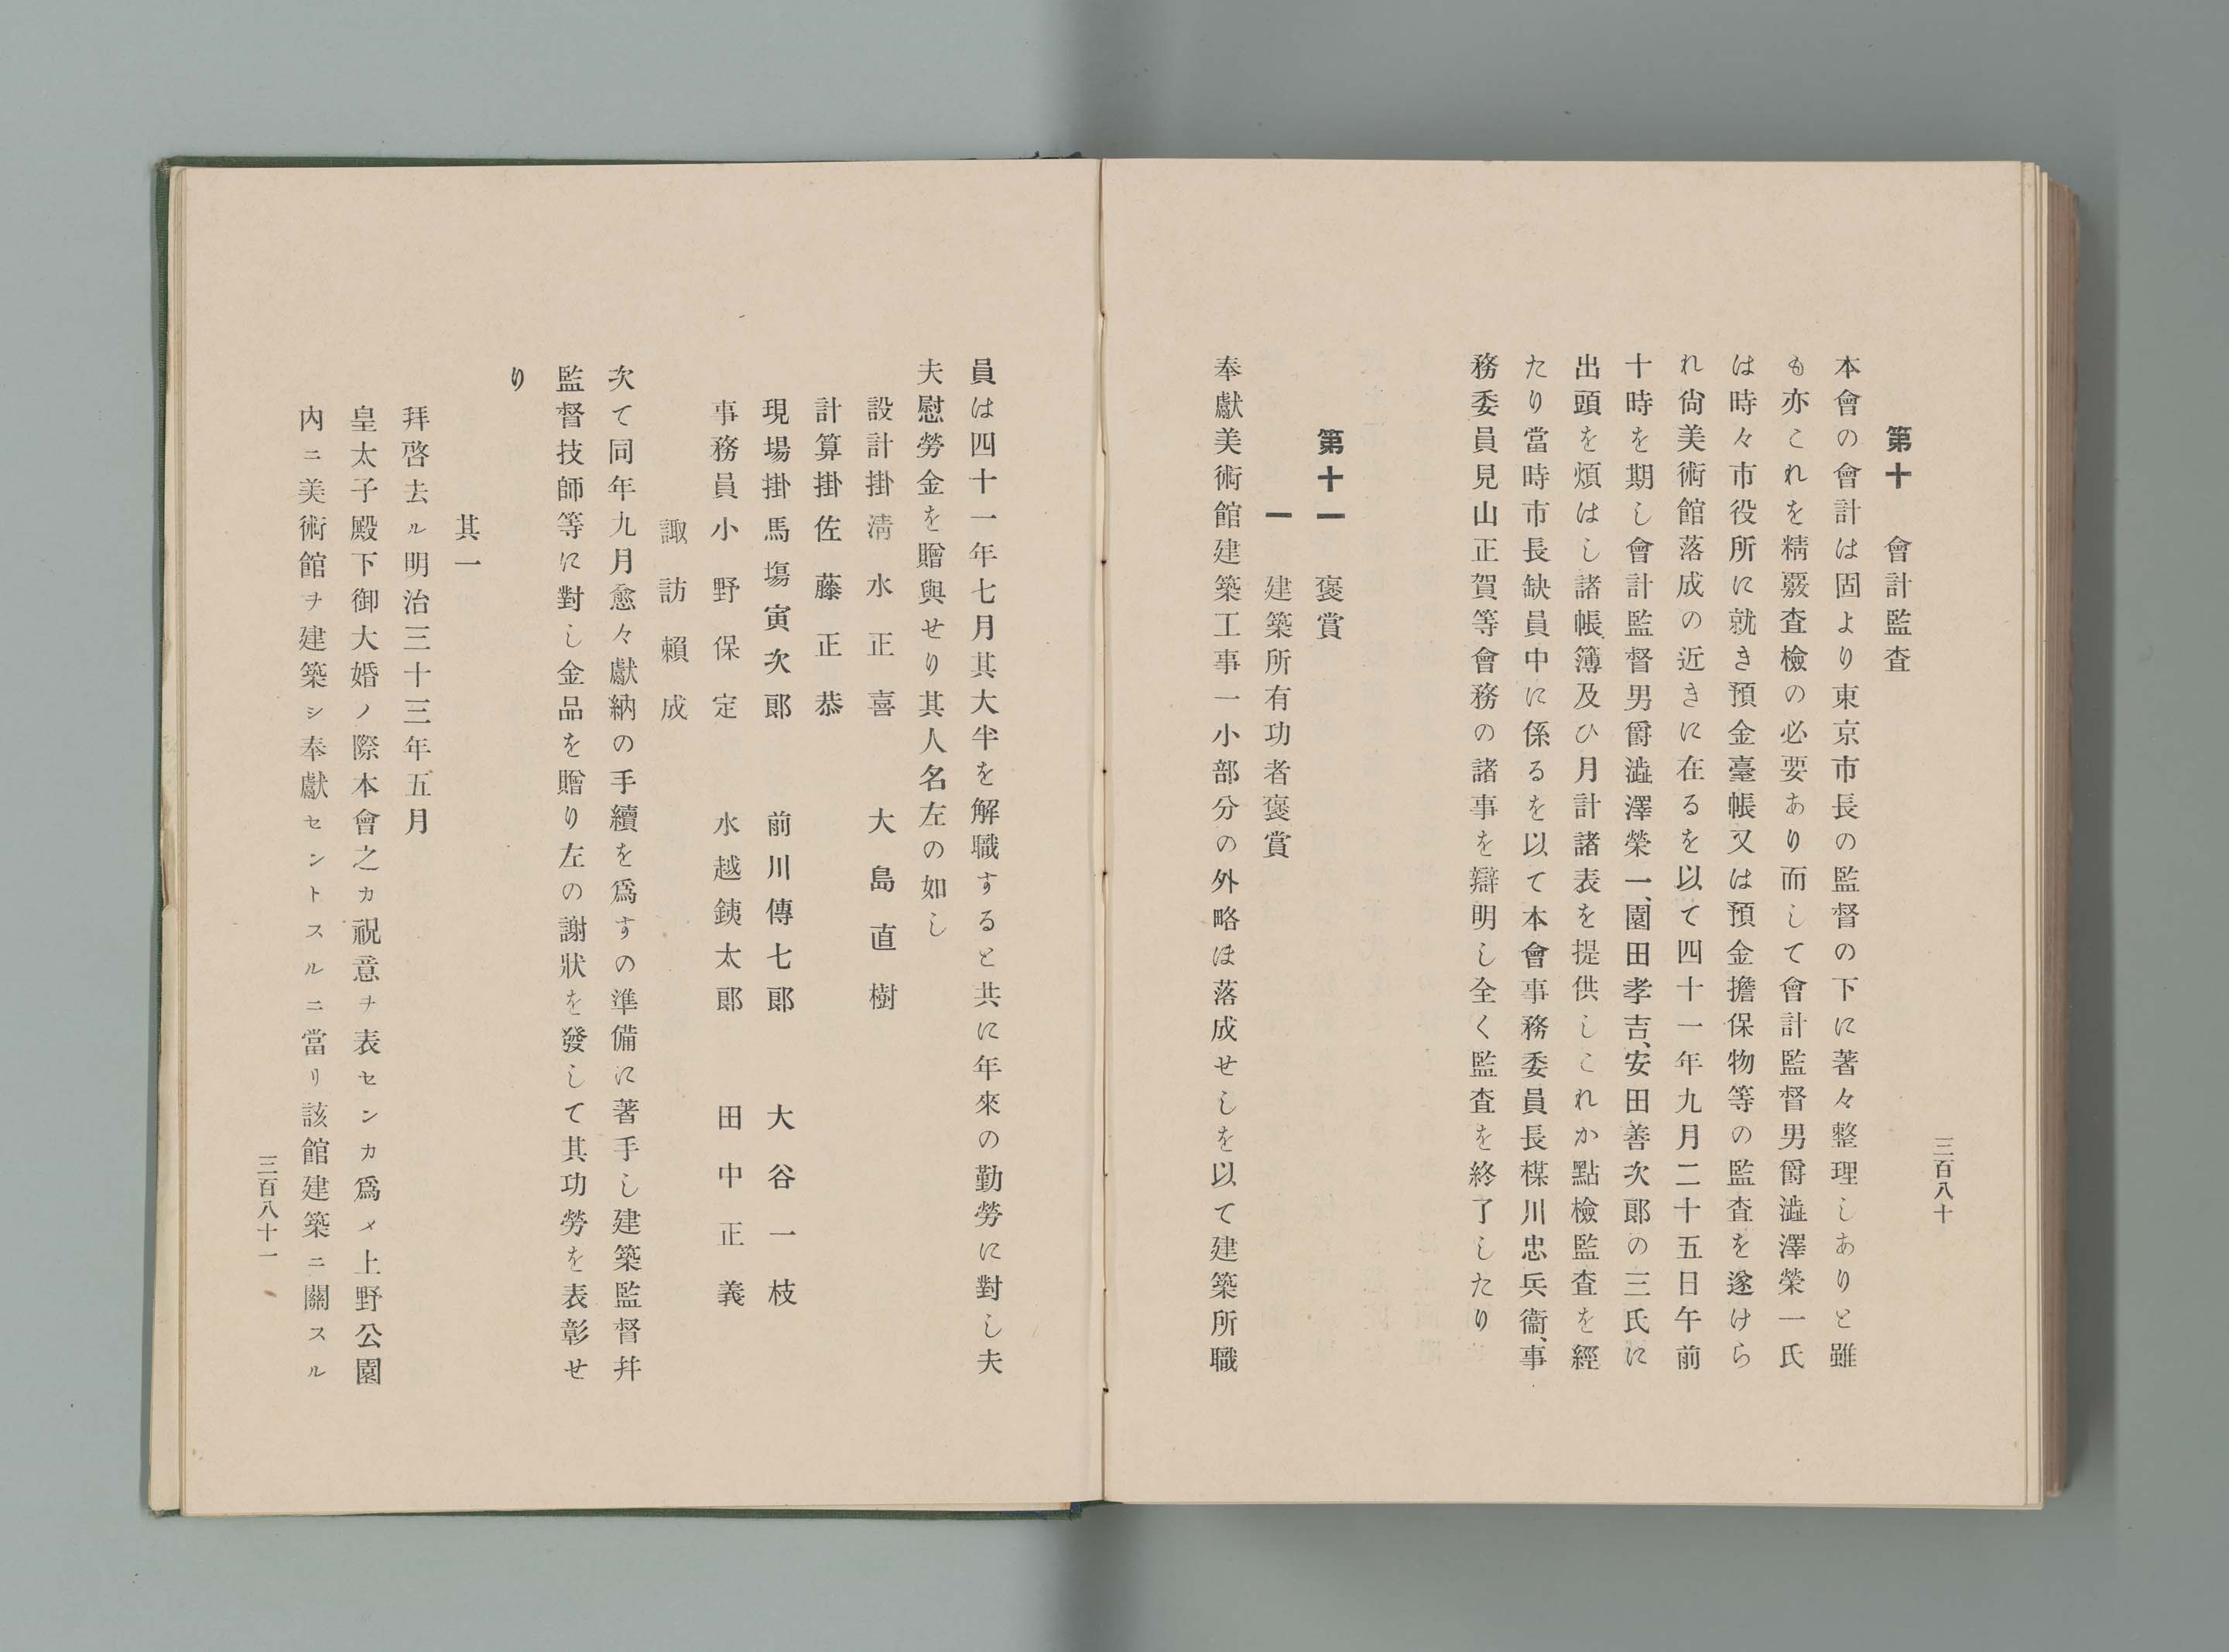 三百八十
第十　會計監査
本會の會計は固より東京市長の監督の下に著々整理しありと雖
も亦これを精覈査檢の必要あり而して會計監督男爵澁澤榮一氏
は時々市役所に就き預金臺帳又は預金擔保物等の監査を遂けら
れ尙美術館落成の近きに在るを以て四十一年九月二十五日午前
十時を期し會計監督男爵澁澤榮一、園田孝吉、安田善次郞の三氏に
出頭を煩はし諸帳簿及ひ月計諸表を提供しこれか點檢監査を經
たり當時市長缺員中に係るを以て本會事務委員長楳川忠兵衞、事
務委員見山正賀等會務の諸事を辯明し全く監査を終了したり
第十一　褒賞
一　建築所有功者褒賞
奉獻美術館建築工事一小部分の外略ほ落成せしを以て建築所職
員は四十一年七月其大半を解職すると共に年來の勤勞に對し夫
夫慰勞金を贈與せり其人名左の如し
設計掛　淸水正喜　大島直樹
計算掛　佐藤正恭
現場掛　馬塲寅次郞　前川傳七郞　大谷一枝
事務員　小野保定　水越銕太郞　田中正義
諏訪賴成
次て同年九月愈々獻納の手續を爲すの準備に著手し建築監督幷
監督技師等に對し金品を贈り左の謝狀を發して其功勞を表彰せ
り
其一
拜啓去ル明治三十三年五月
皇太子殿下御大婚ノ際本會之カ祝意ヲ表センカ爲メ上野公園
內ニ美術館ヲ建築シ奉獻セントスルニ當リ該館建築ニ關スル
三百八十一